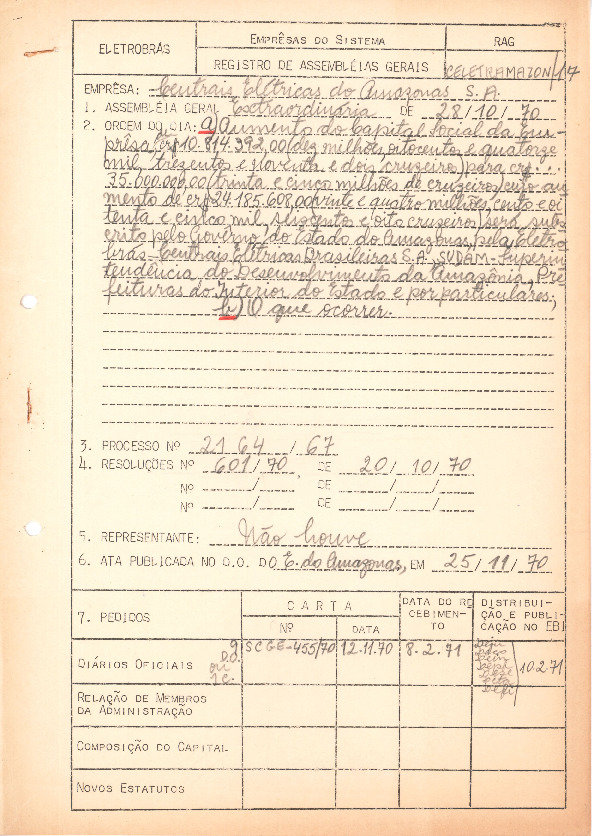 ELETROBRÁS
EMPRÊSAS DO SISTEMA
RAG
REGISTRO DE ASSEMBLÉIAS GERAIS
CELETRAMAZON/17
EMPRÊSA: Centrais Elétricas do Amazonas S.A.
1. ASSEMBLÉIA GERAL Extraordinária DE 28/10/70
2. ORDEM DO DIA: a) Aumento do Capital Social da Em-
prêsa (cr$10.814.392,00 (dez milhões, oitocentos e quatorze
mil, trezentos e noventa e dois cruzeiros) para cr$...
35.000.000,00 (trinta e cinco milhões de cruzeiros) cujo au-
mento de cr$24.185.608,00 vinte e quatro milhões, cento e oi
tenta e cinco mil, seiscentos e oito cruzeiros) será subs
crito pelo Govêrno do Estado do Amazonas, pela Eletro
brás - Centrais Elétricas Brasileiras S.A. SUDAM - Superin
tendência do Desenvolvimento da Amazônia, Pre
feituras do Interior do Estado e por particulares;
b) O que ocorrer.
3. PROCESSO Nº 2164/67
4. RESOLUÇÕES Nº 601/70, DE 20/10/70
Nº ____/____ DE ____/____/____
Nº ____/____ DE ____/____/____
5. REPRESENTANTE: Não houve
6. ATA PUBLICADA NO D.O. DO E. do Amazonas, EM 25/11/70
7. PEDIDOS
CARTA
Nº
DATA
DATA DO RE
CEBIMEN-
TO
DISTRIBUI-
ÇÃO E PUBLI-
CAÇÃO NO EBI
DIÁRIOS OFICIAIS
SCGE-455/70
12.11.70
8.2.71
10.2.71
RELAÇÃO DE MEMBROS
DA ADMINISTRAÇÃO
COMPOSIÇÃO DO CAPITAL
NOVOS ESTATUTOS